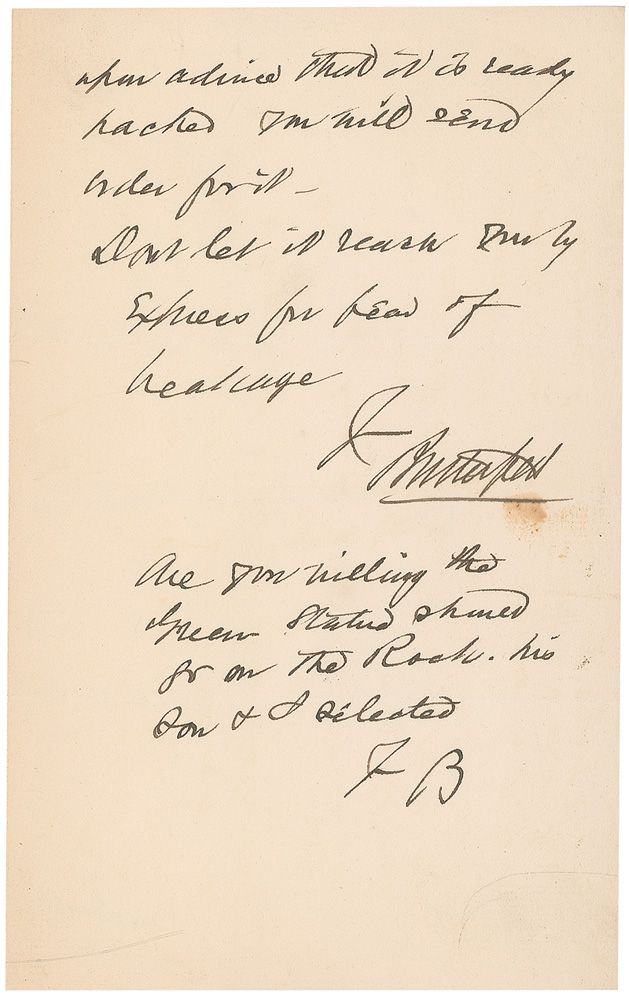 upon advice that it is ready
packed you will send
order for it –
Dont let it reach you by
Express for fear of
breakage
F Butterfield
Are you willing the
Green Statue should
go on the Rock. his
son & I selected
F B